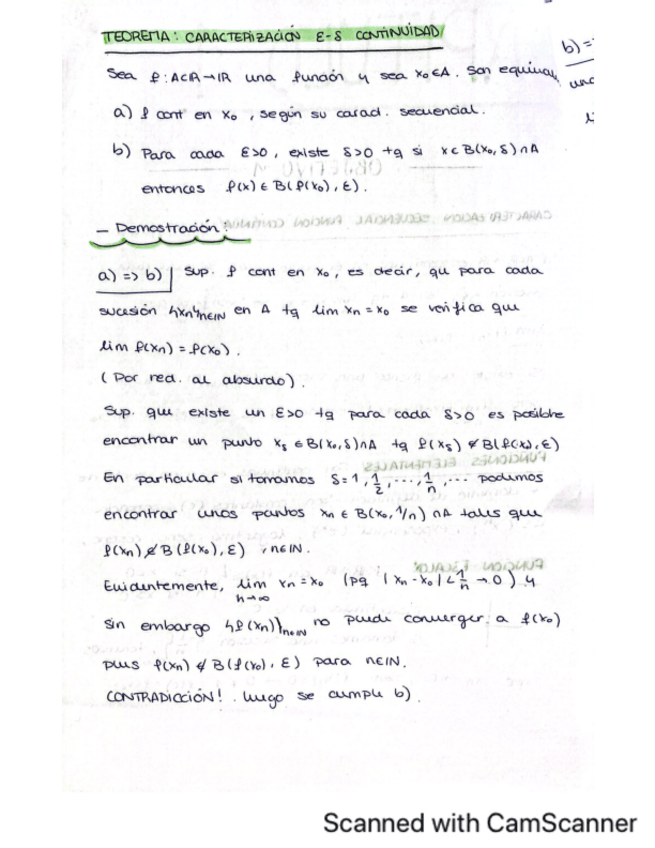 TEOREMA: CARACTERIZACIÓN ε-δ CONTINUIDAD
Sea f: A⊂ℝ→ℝ una función y sea x₀∈A. Son equival
a) f cont en x₀, según su caract. secuencial.
b) Para cada ε>0, existe δ>0 tq si x∈B(x₀,δ)∩A
entonces f(x)∈B(f(x₀),ε).
— Demostración:
a) => b) Sup. f cont en x₀, es decir, que para cada
sucesión {xn}n∈ℕ en A tq lim xn = x₀ se verifica que
lim f(xn) = f(x₀).
(Por red. al absurdo).
Sup. que existe un ε>0 tq para cada δ>0 es posible
encontrar un punto xδ ∈ B(x₀,δ)∩A tq f(xδ) ∉ B(f(x₀),ε)
En particular si tomamos δ=1, 1/2, ..., 1/n, ... podemos
encontrar unos puntos xn ∈ B(x₀,1/n) ∩A tales que
f(xn) ∉ B(f(x₀),ε), n∈ℕ.
Evidentemente, lim n→∞ xn = x₀ (pq |xn-x₀| < 1/n → 0) y
sin embargo {f(xn)}n∈ℕ no puede converger a f(x₀)
pues f(xn) ∉ B(f(x₀),ε) para n∈ℕ.
CONTRADICCIÓN! luego se cumple b).
b) =
Scanned with CamScanner